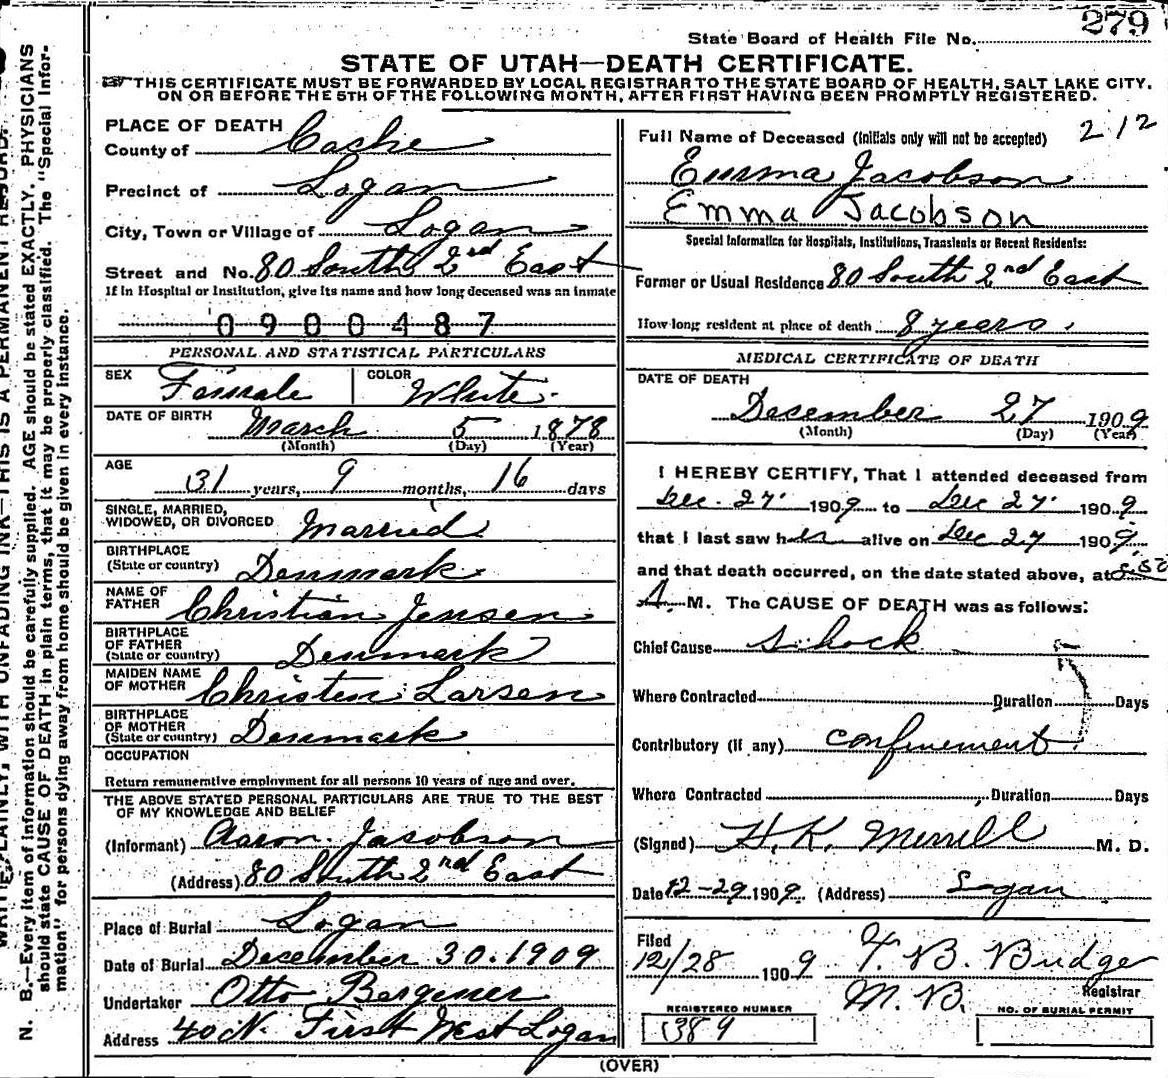 279
State Board of Health File No.
STATE OF UTAH—DEATH CERTIFICATE.
THIS CERTIFICATE MUST BE FORWARDED BY LOCAL REGISTRAR TO THE STATE BOARD OF HEALTH, SALT LAKE CITY,
ON OR BEFORE THE 5TH OF THE FOLLOWING MONTH, AFTER FIRST HAVING BEEN PROMPTLY REGISTERED.
PLACE OF DEATH
County of Cache
Precinct of Logan
City, Town or Village of Logan
Street and No. 80 South 2nd East
If in Hospital or Institution, give its name and how long deceased was an inmate
0900487
PERSONAL AND STATISTICAL PARTICULARS
SEX Female COLOR White
DATE OF BIRTH March 5 1878
(Month) (Day) (Year)
AGE 31 years, 9 months, 16 days
SINGLE, MARRIED,
WIDOWED, OR DIVORCED Married
BIRTHPLACE
(State or country) Denmark
NAME OF
FATHER Christian Jensen
BIRTHPLACE
OF FATHER
(State or country) Denmark
MAIDEN NAME
OF MOTHER Christen Larsen
BIRTHPLACE
OF MOTHER
(State or country) Denmark
OCCUPATION
Return remunerative employment for all persons 10 years of age and over.
THE ABOVE STATED PERSONAL PARTICULARS ARE TRUE TO THE BEST
OF MY KNOWLEDGE AND BELIEF
(Informant) Aaron Jacobson
(Address) 80 South 2nd East
Place of Burial Logan
Date of Burial December 30. 1909
Undertaker Otto
Address 40 N. First West Logan
212
Full Name of Deceased (Initials only will not be accepted)
Emma Jacobson
Emma Jacobson
Special Information for Hospitals, Institutions, Transients or Recent Residents:
Former or Usual Residence 80 South 2nd East
How long resident at place of death 8 years.
MEDICAL CERTIFICATE OF DEATH
DATE OF DEATH
December 27 1909
(Month) (Day) (Year)
I HEREBY CERTIFY, That I attended deceased from
Dec. 27 1909 to Dec 27 1909
that I last saw her alive on Dec 27 1909
and that death occurred, on the date stated above, at
A M. The CAUSE OF DEATH was as follows:
Chief Cause Shock
Where Contracted Duration Days
Contributory (if any) confinement
Where Contracted Duration Days
(Signed) H. K. Merrill M. D.
Date 12-29 1909 (Address) Logan
Filed
12/28 1909 T. B. Budge
M. D. Registrar
REGISTERED NUMBER
1389
NO. OF BURIAL PERMIT
(OVER)
WRITE PLAINLY, WITH UNFADING INK—THIS IS A PERMANENT RECORD.
N. B.—Every item of information should be carefully supplied. AGE should be stated EXACTLY. PHYSICIANS
should state CAUSE OF DEATH in plain terms, that it may be properly classified. The "Special Infor-
mation" for persons dying away from home should be given in every instance.